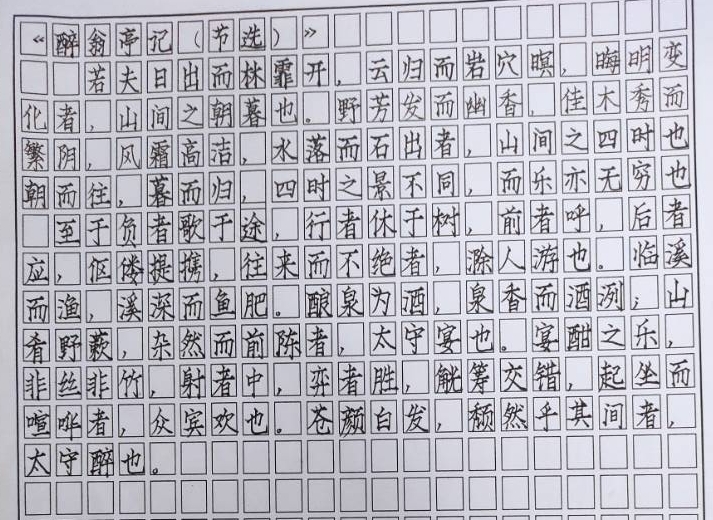 《醉翁亭记（节选）》
若夫日出而林霏开，云归而岩穴暝，晦明变
化者，山间之朝暮也。野芳发而幽香，佳木秀而
繁阴，风霜高洁，水落而石出者，山间之四时也
朝而往，暮而归，四时之景不同，而乐亦无穷也
至于负者歌于途，行者休于树，前者呼，后者
应，伛偻提携，往来而不绝者，滁人游也。临溪
而渔，溪深而鱼肥。酿泉为酒，泉香而酒洌；山
肴野蔌，杂然而前陈者，太守宴也。宴酣之乐，
非丝非竹，射者中，弈者胜，觥筹交错，起坐而
喧哗者，众宾欢也。苍颜白发，颓然乎其间者，
太守醉也。